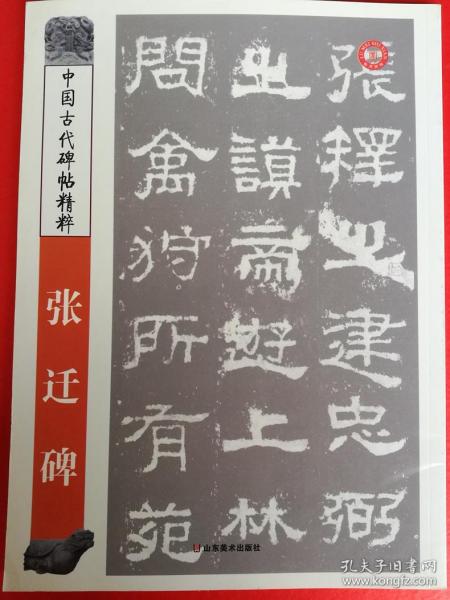 中国古代碑帖精粹
张迁碑
張釋之建忠弼
之謨帝遊上林
問禽狩所有苑
山东美术出版社
孔夫子旧书网
www.kongfz.com